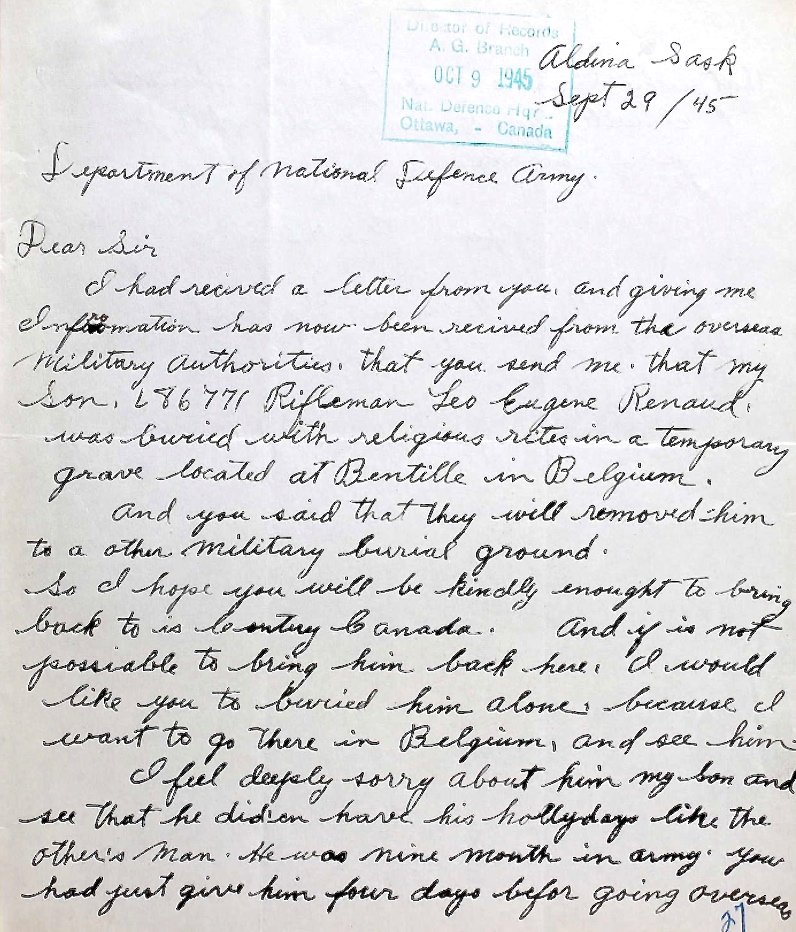 Director of Records
A. G. Branch
OCT 9 1945
Nat. Defence Hqr.
Ottawa, - Canada
Aldina Sask
Sept 29 / 45
Department of National Defence Army.
Dear Sir
I had recived a letter from you. and giving me
Information has now been recived from the overseas
Military Authorities. that you send me. that my
Son. L86771 Rifleman Leo Eugene Renaud.
was buried with religious rites in a temporary
grave located at Bentille in Belgium.
And you said that they will removed him
to a other Military burial ground.
So I hope you will be kindly enought to bring
back to is Country Canada. And if is not
possiable to bring him back here. I would
like you to buried him alone. because I
want to go there in Belgium, and see him
I feel deeply sorry about him my son and
see that he did'en have his hollydays like the
other's Man. He was nine month in army. you
had just give him four days befor going overseas
27